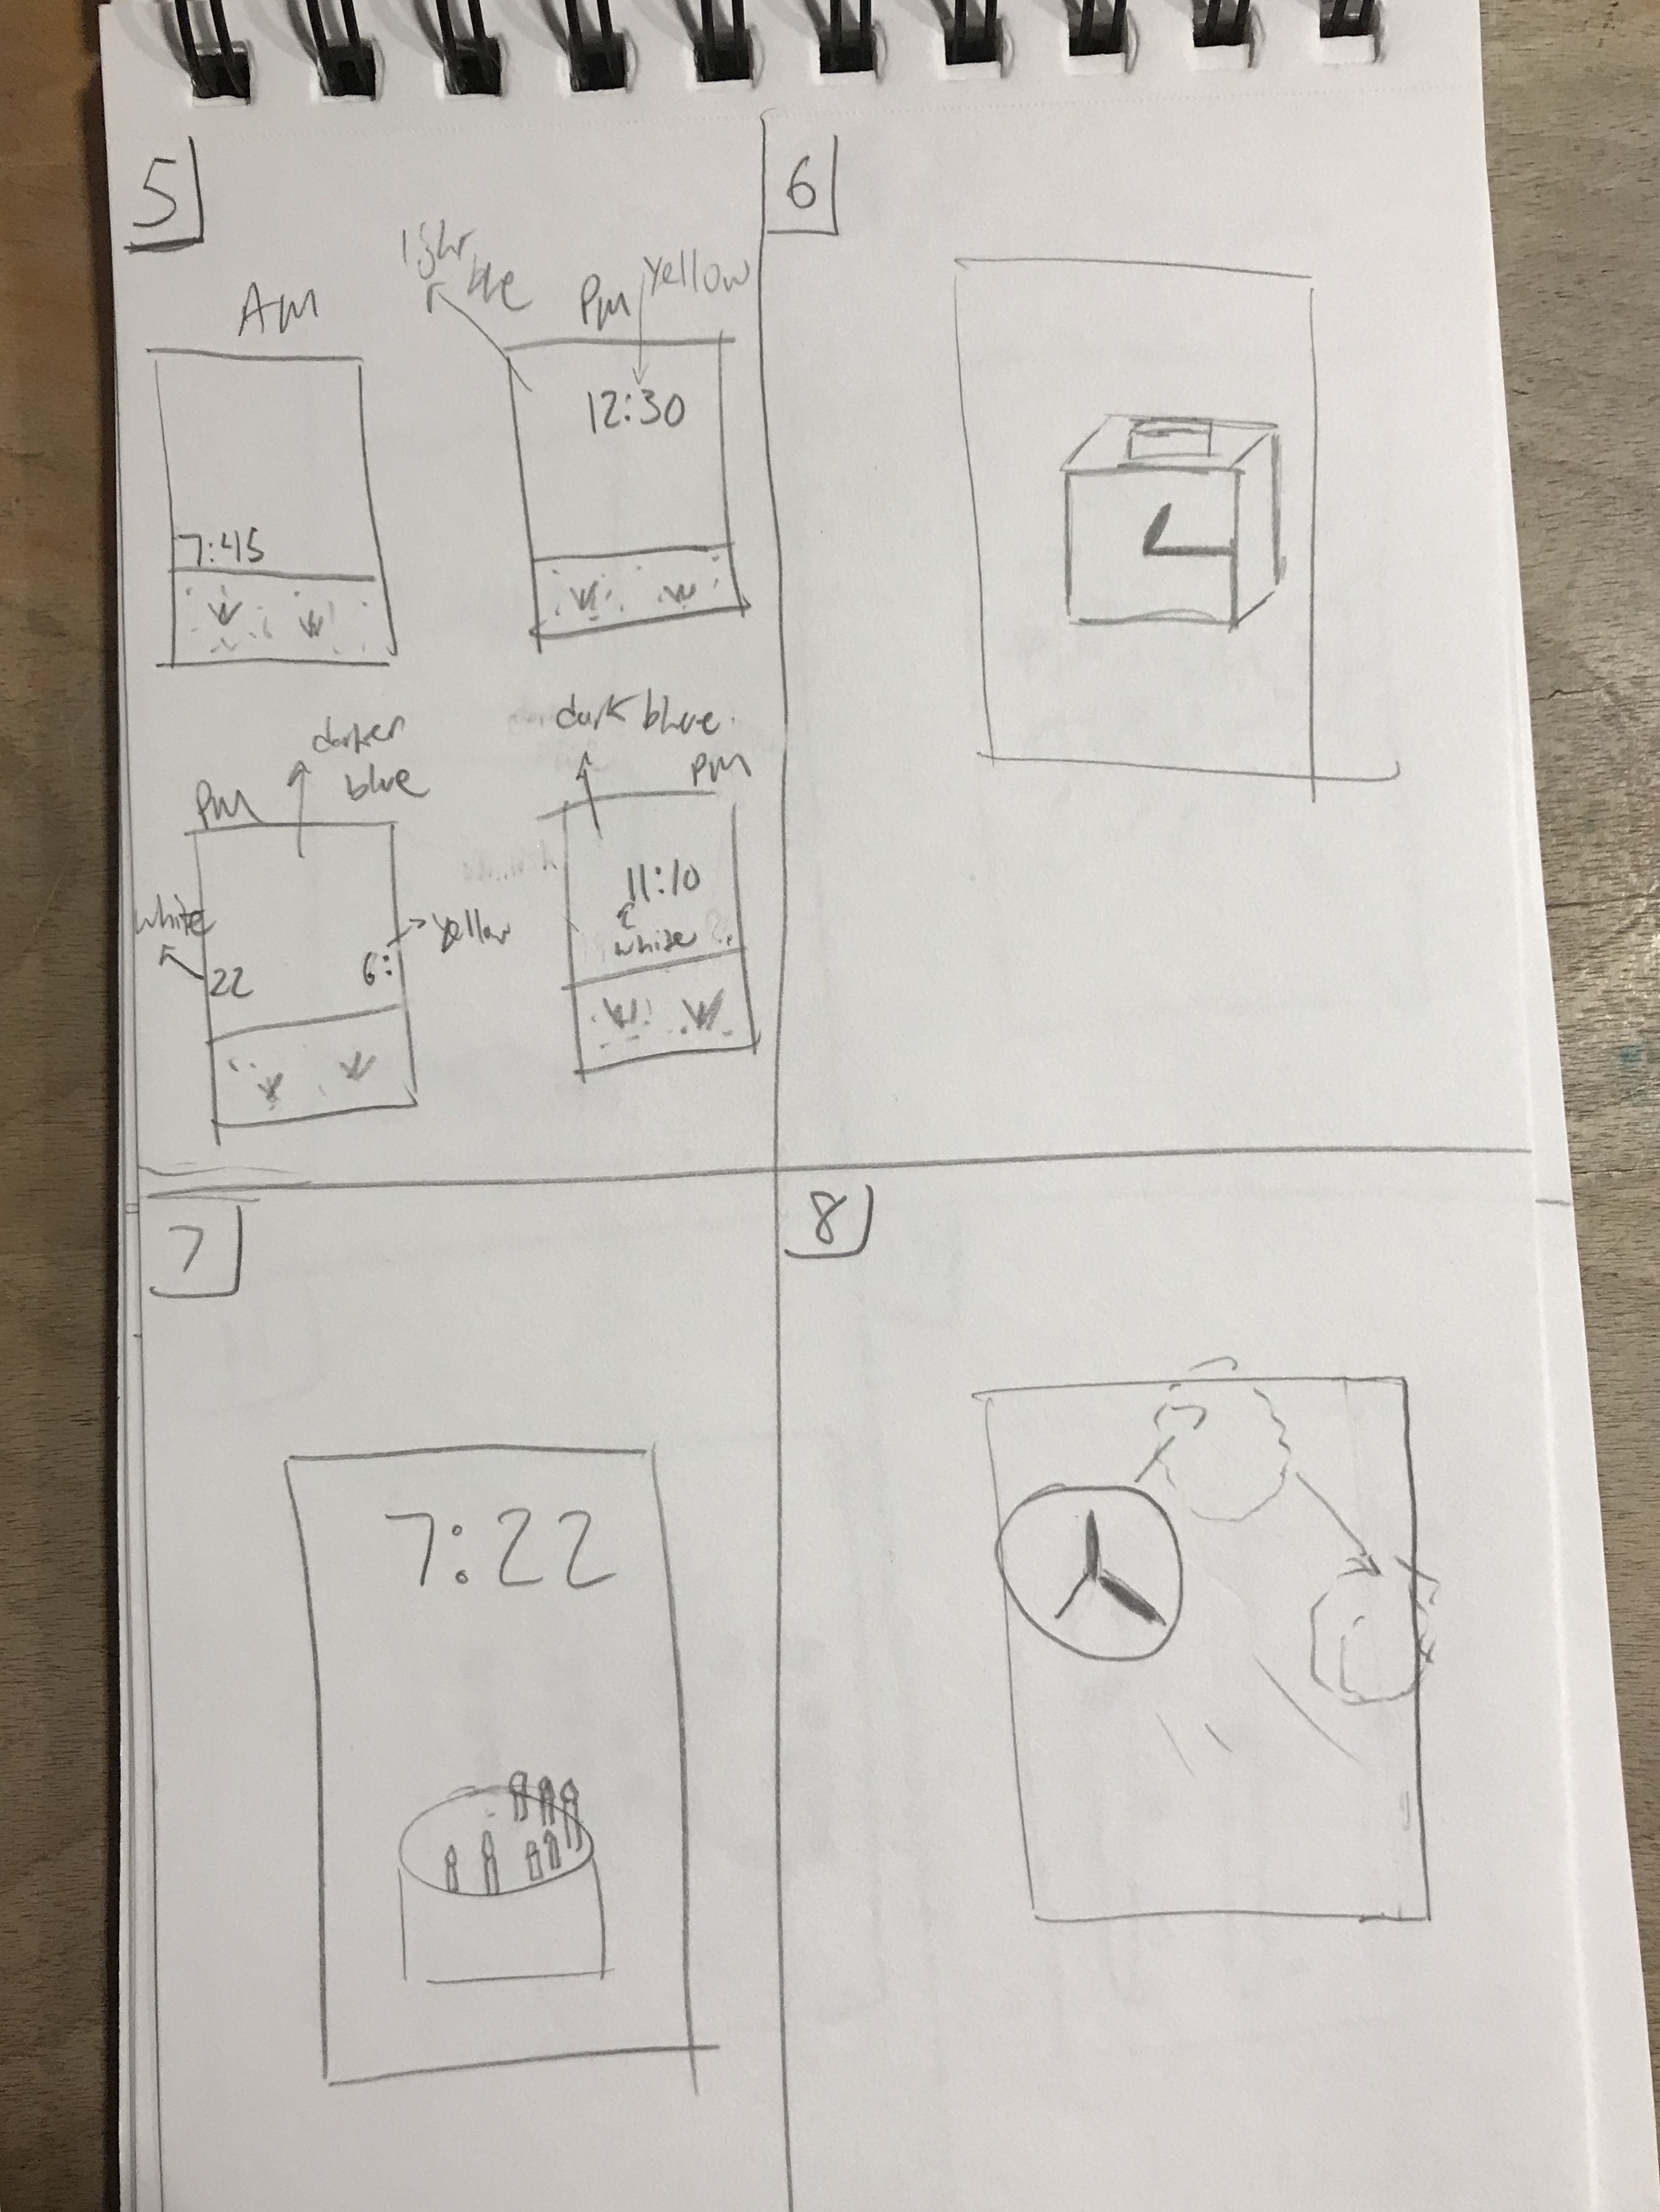 5
AM
7:45
light
blue
PM
yellow
12:30
PM
darker
blue
white
22
6:
yellow
dark blue
PM
11:10
white
6
7
7:22
8